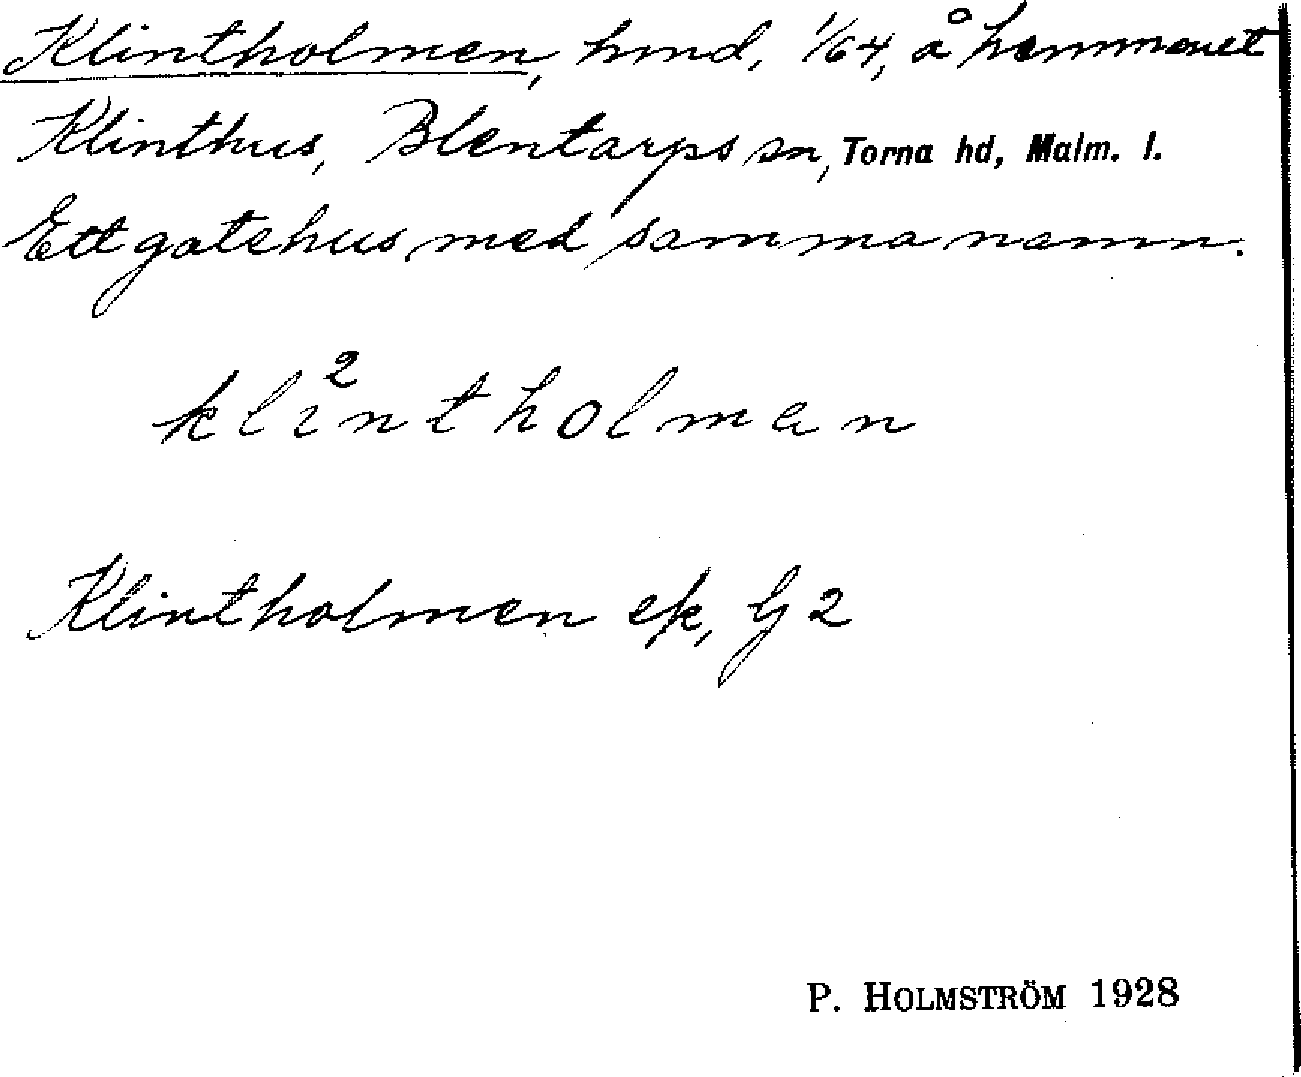 Klintholmen, hmd, 1/64, å hemmanet
Klinthus, Blentarps sn, Torna hd, Malm. l.
Ett gatehus med samma namn.
kli²ntholman
Klintholmen ek, G 2
P. HOLMSTRÖM 1928